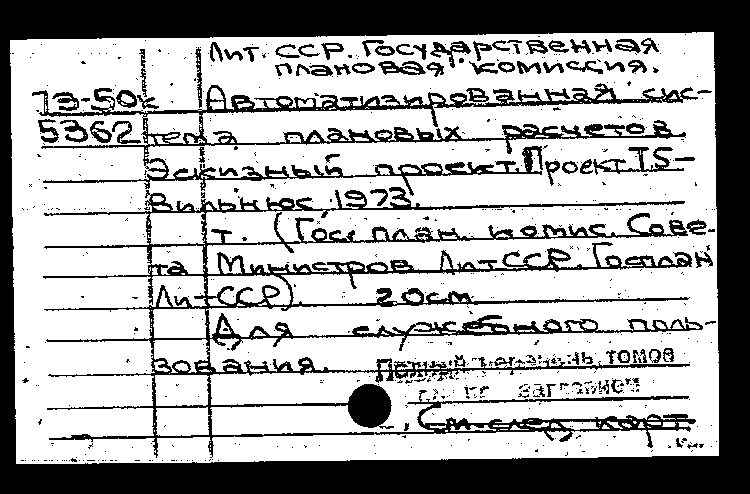 Лит. ССР. Государственная
плановая комиссия.
73-50к Автоматизированная сис-
5362 тема плановых расчетов.
Эскизный проект. Проект TS-
Вильнюс 1973.
т. (Гос. план. комис. Сове-
та Министров ЛитССР. Госплан
ЛитССР). 20см
Для служебного поль-
зования. Полный перечень томов
заглавием
См. след. карт.